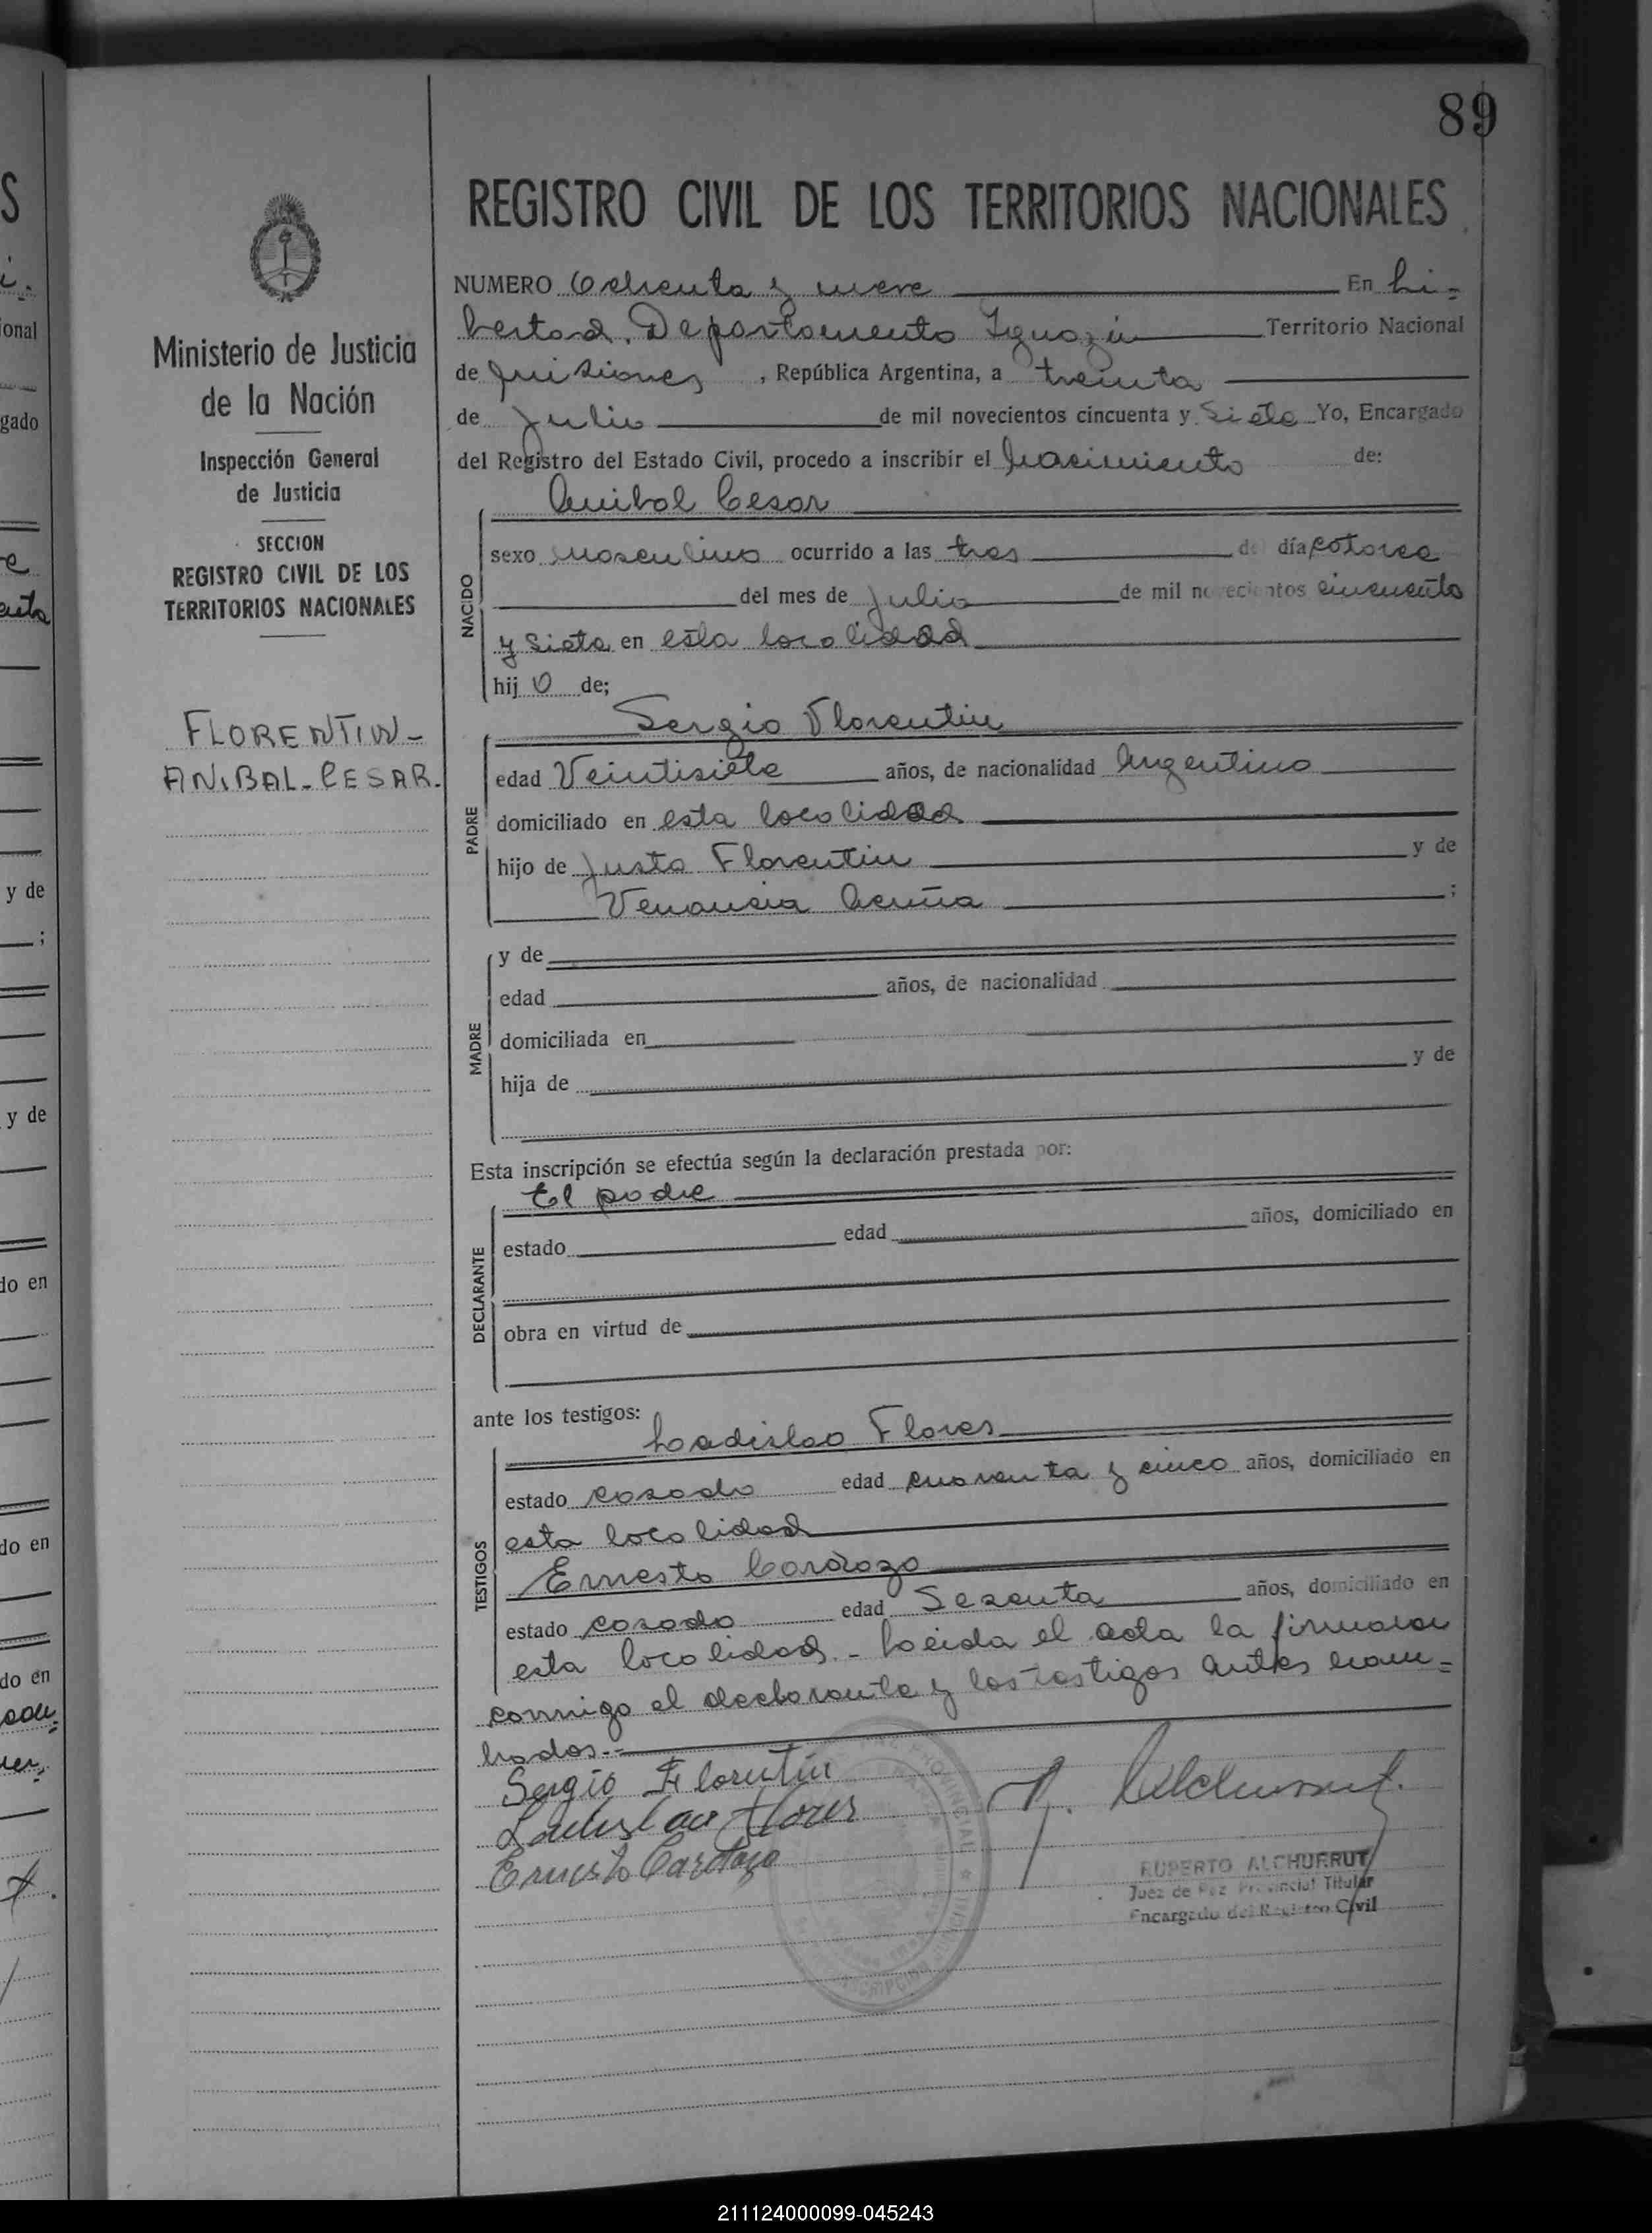 89
REGISTRO CIVIL DE LOS TERRITORIOS NACIONALES
Ministerio de Justicia
de la Nación
Inspección General
de Justicia
SECCION
REGISTRO CIVIL DE LOS
TERRITORIOS NACIONALES
FLORENTIN-
ANIBAL-CESAR.
NUMERO Ochenta y nueve En Li-
bertad, Departamento Iguazú Territorio Nacional
de Misiones, República Argentina, a treinta
de Julio de mil novecientos cincuenta y Siete Yo, Encargado
del Registro del Estado Civil, procedo a inscribir el Nacimiento de:
NACIDO
Anibal Cesar
sexo masculino ocurrido a las tres del día catorce
del mes de Julio de mil novecientos cincuenta
y Siete en esta localidad
hij o de;
PADRE
Sergio Florentin
edad Veintisiete años, de nacionalidad Argentino
domiciliado en esta localidad
hijo de Justo Florentin y de
Venancia Acuña ;
MADRE
y de
edad años, de nacionalidad
domiciliada en
hija de y de
Esta inscripción se efectúa según la declaración prestada por:
DECLARANTE
El padre
estado edad años, domiciliado en
obra en virtud de
ante los testigos:
TESTIGOS
Ladislao Flores
estado casado edad cuarenta y cinco años, domiciliado en
esta localidad
Ernesto Cardozo
estado casado edad Sesenta años, domiciliado en
esta localidad.- Leida el acta la firman
conmigo el declarante y los testigos antes nom-
brados.-
Sergio Florentin
Ladislao Flores
Ernesto Cardozo
R. Alchurrut.
RUPERTO ALCHURRUT
Juez de Paz Provincial Titular
Encargado del Registro Civil
211124000099-045243